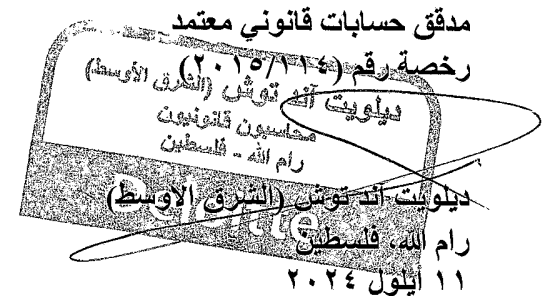 مدقق حسابات قانوني معتمد
رخصة رقم (٢٠١٥/١١٤)
ديلويت آند توش (الشرق الأوسط)
محاسبون قانونيون
رام الله - فلسطين
Deloitte
ديلويت آند توش (الشرق الاوسط)
رام الله، فلسطين
١١ أيلول ٢٠٢٤